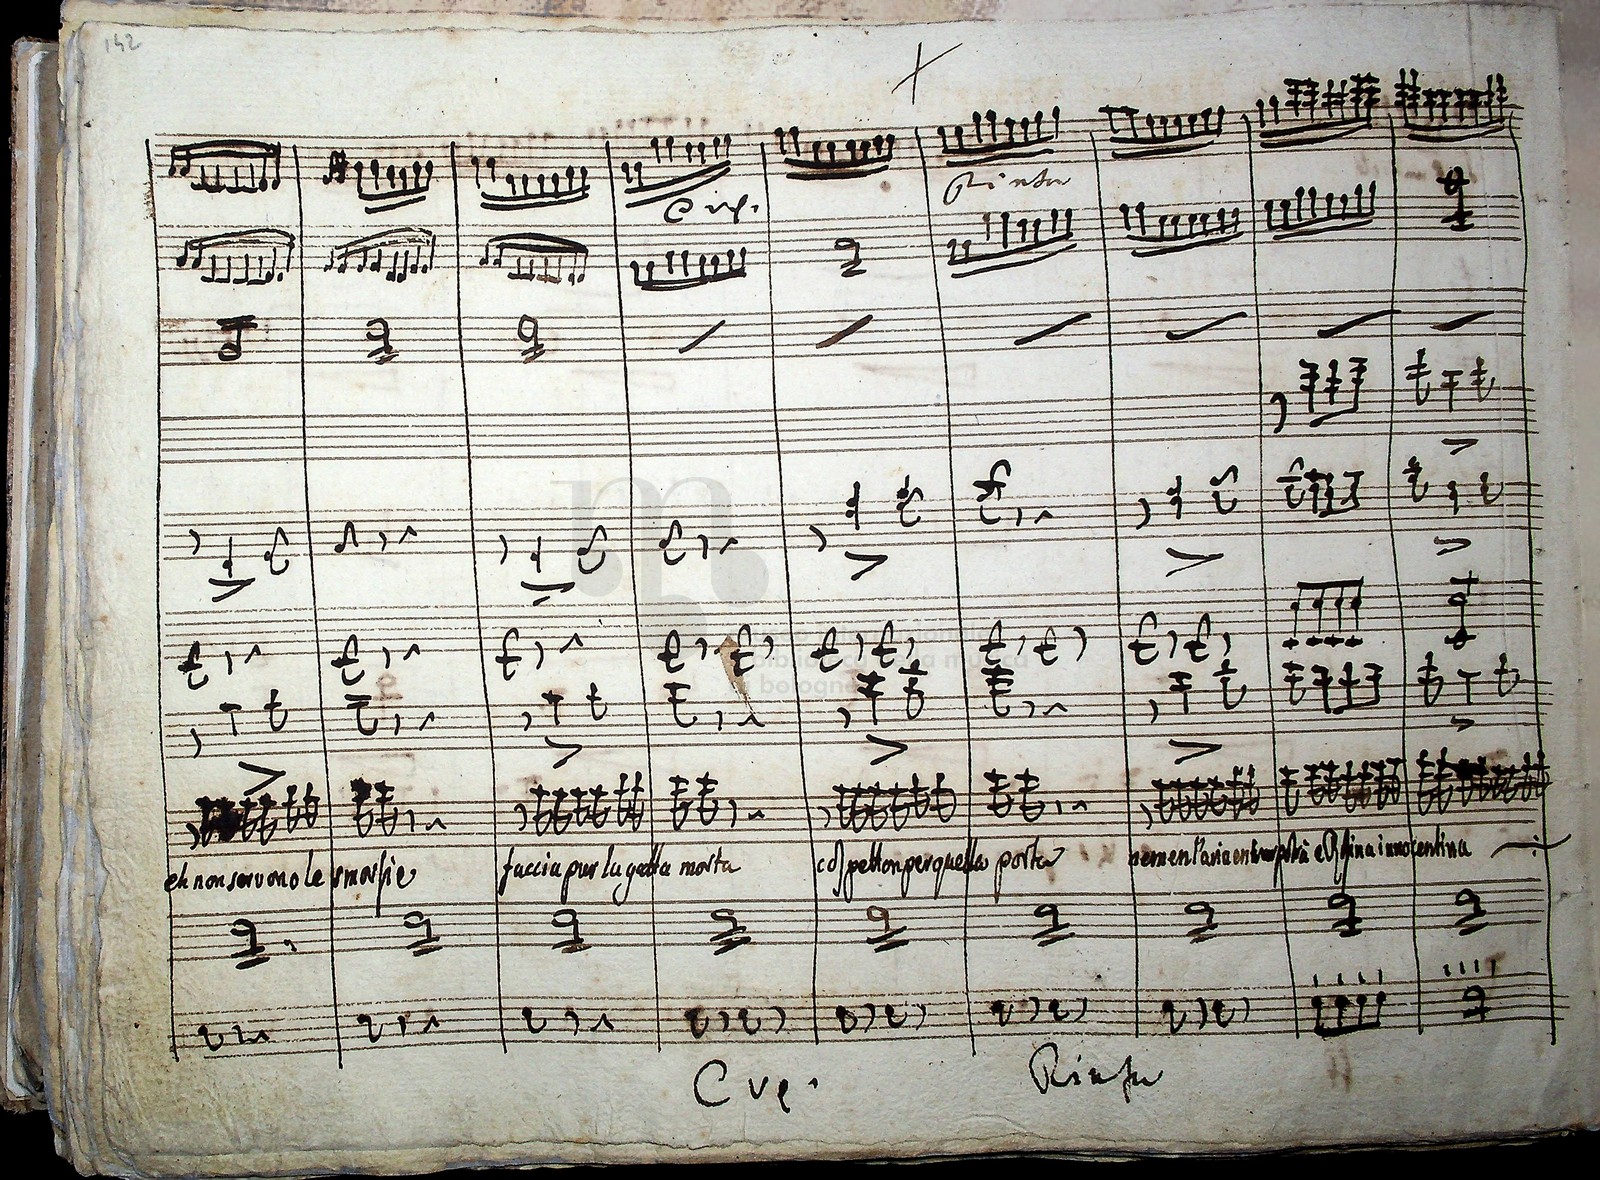 142
Cres.
Rinfor
eh non servono le smorfie faccia pur la gatta morta cospetton per quella porta nemen l'aria entrar potrà e Rosina innocentina
Cres.
Rinfor